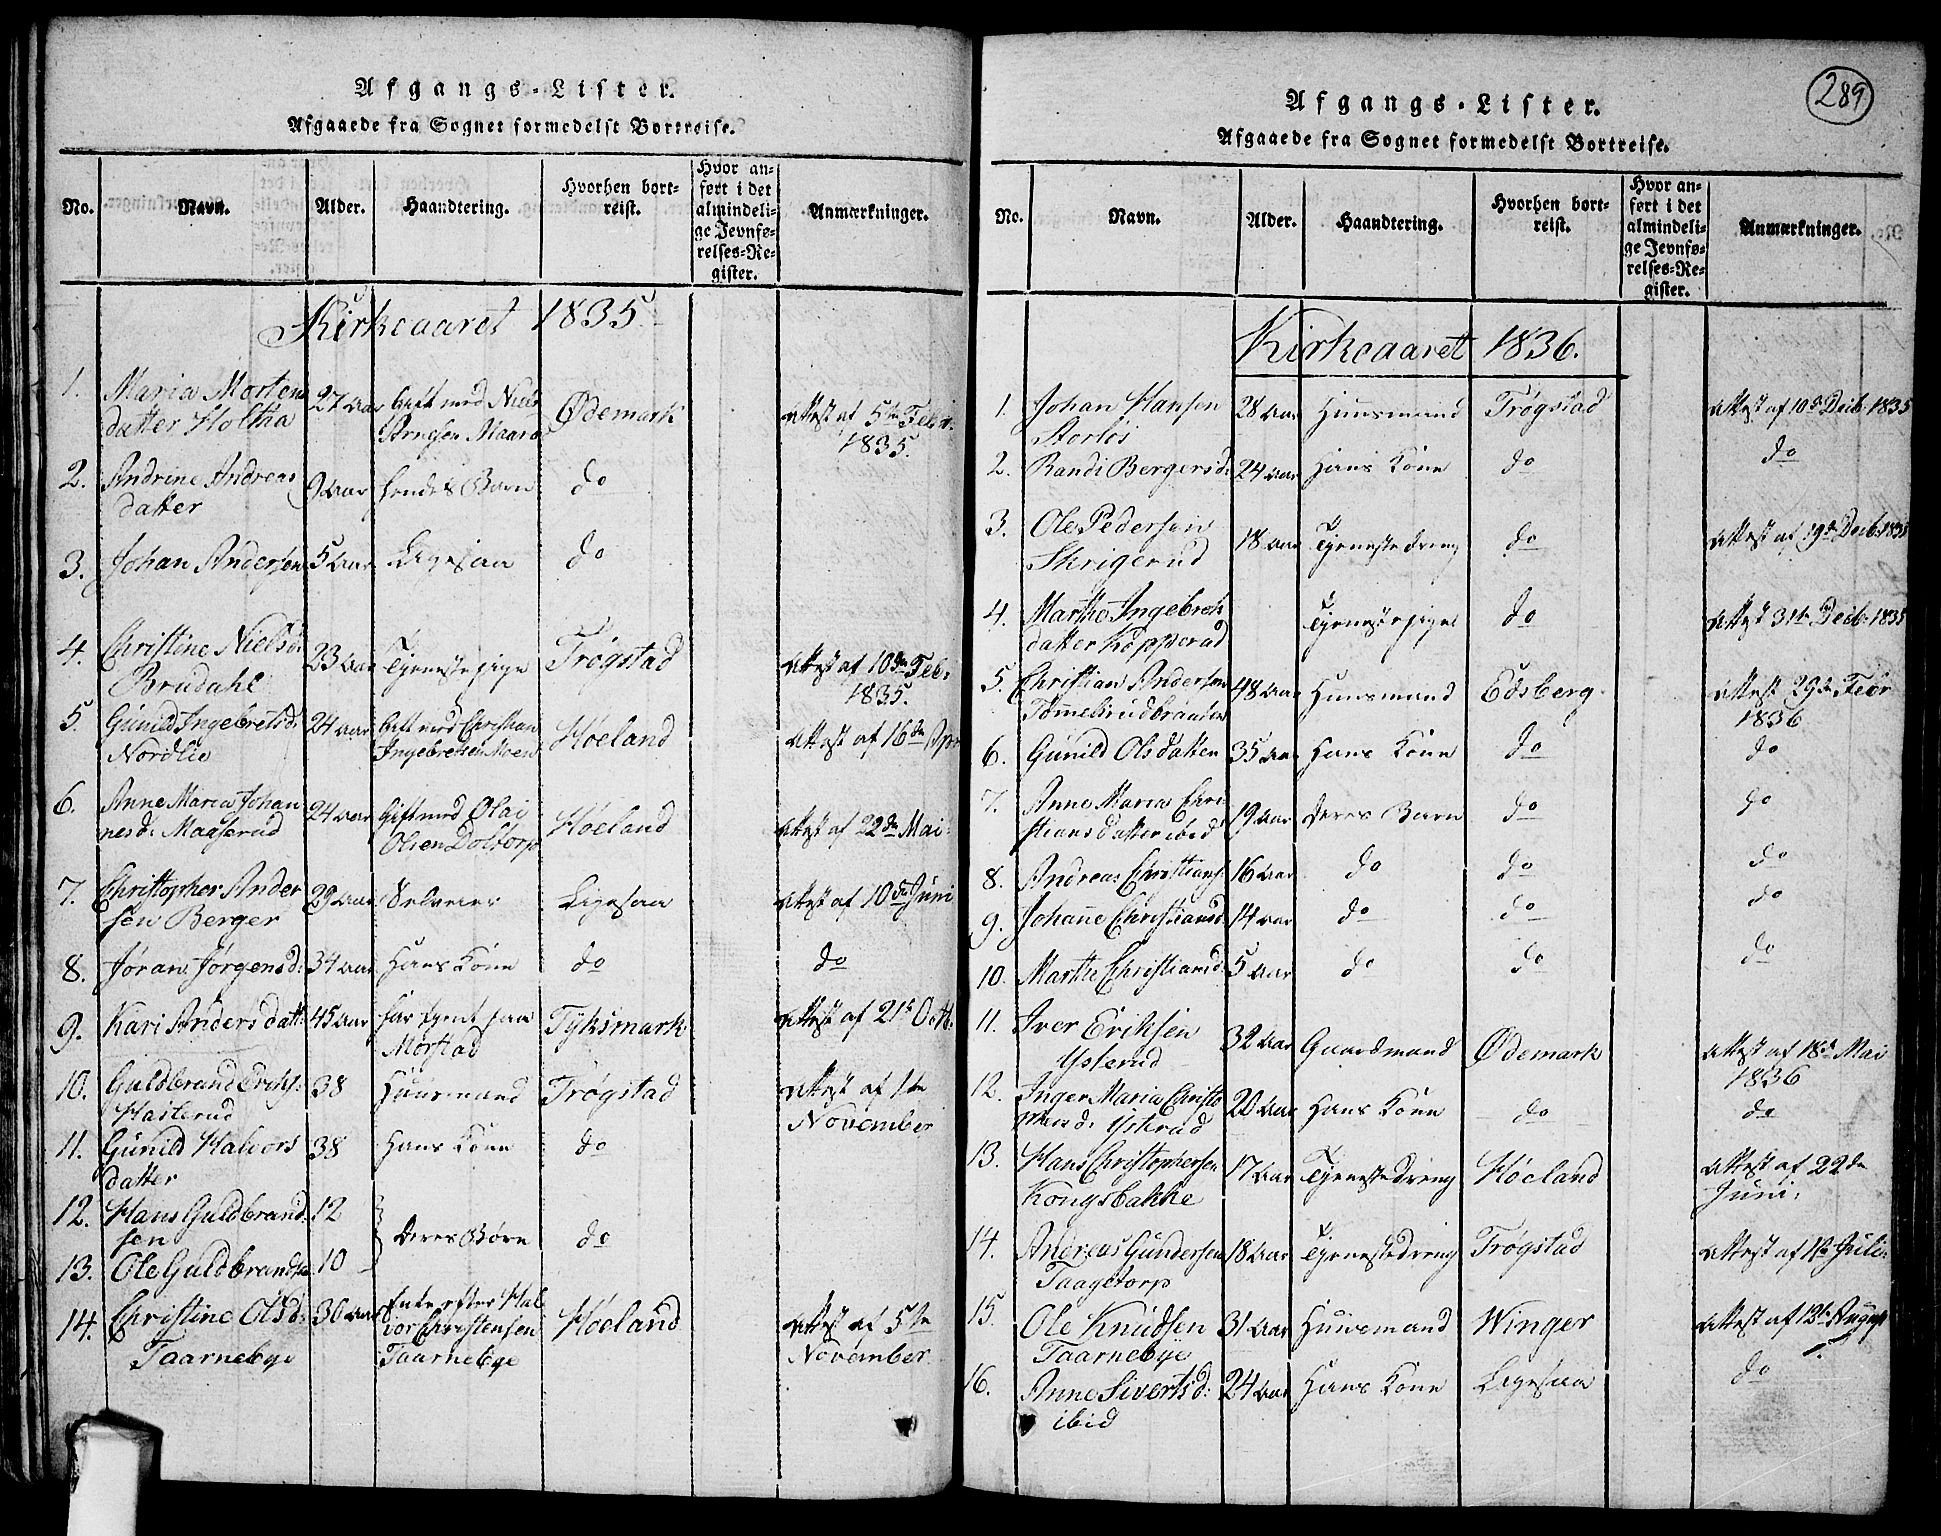 Afgangs-Lister.
Afgaaede fra Sognet formedelst Bortreise.
No. Navn. Alder. Haandtering. Hvorhen bortreist. Hvor anført i det almindelige Jevnførelses-Register. Anmærkninger.
Kirkeaaret 1835.
1. Maria Mortens 27 Aar Gift med Niels Ødemark Attest af 5te Febr.
datter Holtha Arnesen Maarø 1835.
2. Andrine Andreas 9 Aar hendes Barn do
datter
3. Johan Andersen 5 Aar Ligesaa do
4. Christine Nielsd: 23 Aar Tjenestepige Trøgstad Attest af 10de Feb:
Brudahl 1835.
5. Gunild Ingebretsd: 24 Aar Gift med Christian Høeland Attest af 16de Apr
Nordlie Ingebretsen Moen
6. Anne Maria Johan 24 Aar Gift med Olai Høeland Attest af 22de Mai
nesd: Maaserud Olsen Doltorp
7. Christopher Ander 29 Aar Selveier Ligesaa Attest af 10de Juni
sen Berger
8. Jøran Jørgensd: 34 Aar Hans Kone do do
9. Kari Anders datt: 45 Aar har tjent paa Tyksmark Attest af 21de Octb.
Mørstad
10. Guldbrand Eriks: 38 Huusmand Trøgstad Attest af 1te
Haslerud November
11. Gunild Halvors 38 Hans Kone do
datter
12. Hans Guldbrand 12 Deres Børn do
sen
13. Ole Guldbrandsen 10
14. Christine Olsd: 30 Aar Enke efter Hal Høeland Attest af 5te
Taarnebye vor Christensen November.
Taarnebye
289
Afgangs-Lister.
Afgaaede fra Sognet formedelst Bortreise.
No. Navn. Alder. Haandtering. Hvorhen bortreist. Hvor anført i det almindelige Jevnførelses-Register. Anmærkninger.
Kirkeaaret 1836.
1. Johan Hansen 28 Aar Huusmand Trøgstad Attest af 10de Decb. 1835
Storløs
2. Randi Bergersd: 24 Aar Hans Kone do do
3. Ole Pedersen 18 Aar Tjenestedreng do Attest af 19de Decb. 1835
Skrigerud
4. Marthe Ingebrets Tjenestepige do Attest 31te Decb. 1835
datter Kopperud
5. Christian Andersen 48 Aar Huusmand Edsberg Attest 29de Febr
1836
6. Gunild Olsdatter 35 Aar Hans Kone do do
7. Anne Maria Chri 19 Aar Deres Barn do do
stiansdatter ibid
8. Andreas Christians: 16 Aar do do do
9. Johanne Christiansd. 14 Aar do do do
10. Marthe Christiansd: 5 Aar do do do
11. Iver Eriksen 32 Aar Gaardmand Ødemark Attest af 18de Mai
Ysterud 1836
12. Inger Maria Christo 20 Aar Hans Kone do do
phersd: Ysterud
13. Hans Christophersen 17 Aar Tjenestedreng Høeland Attest af 22de
Kongsbakke Juni.
14. Andreas Gundersen 18 Aar Tjenestedreng Trøgstad Attest af 1te Juli
Taagetorp
15. Ole Knudsen 31 Aar Huusmand Winger Attest af 12te August
Taarnebye
16. Anne Sivertsd: 24 Aar Hans Kone Ligesaa do
ibid